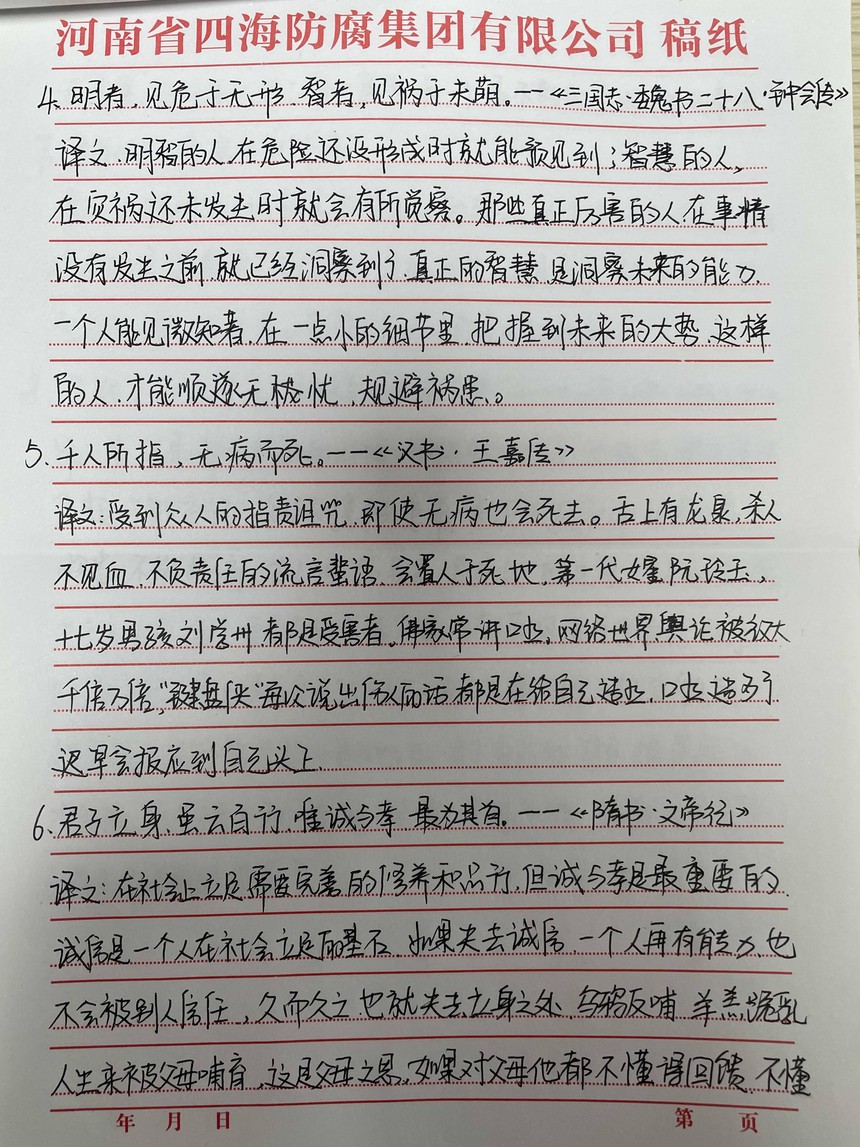 河南省四海防腐集团有限公司 稿纸
4、明者，见危于无形、智者，见祸于未萌。——《三国志·魏书二十八·钟会传》
译文、明智的人，在危险还没形成时就能预见到；智慧的人，
在灾祸还未发生时就会有所觉察。那些真正厉害的人在事情
没有发生之前，就已经洞察到了，真正的智慧，是洞察未来的能力，
一个人能见微知著，在一点小的细节里，把握到未来的大势，这样
的人，才能顺遂无忧，规避祸患。
5、千人所指，无病而死。——《汉书·王嘉传》
译文：受到众人的指责诅咒，即使无病也会死去。舌上有龙泉，杀人
不见血，不负责任的流言蜚语，会置人于死地，第一代女星阮玲玉，
十七岁男孩刘学州，都是受害者。佛家常讲口业，网络世界舆论被放大
千倍万倍，“键盘侠”每次说出伤人的话，都是在给自己造业，口业造多了
迟早会报应到自己头上
6、君子立身，虽云百行，唯诚与孝，最为其首。——《隋书·文帝纪》
译文：在社会上立足需要完善的修养和品行，但诚与孝是最重要的
诚信是一个人在社会立足的基石，如果失去诚信，一个人再有能力，也
不会被别人信任，久而久之，也就失去立身之处，乌鸦反哺，羊羔跪乳
人生来被父母哺育，这是父母之恩，如果对父母他都不懂得回馈，不懂
年 月 日 第 页